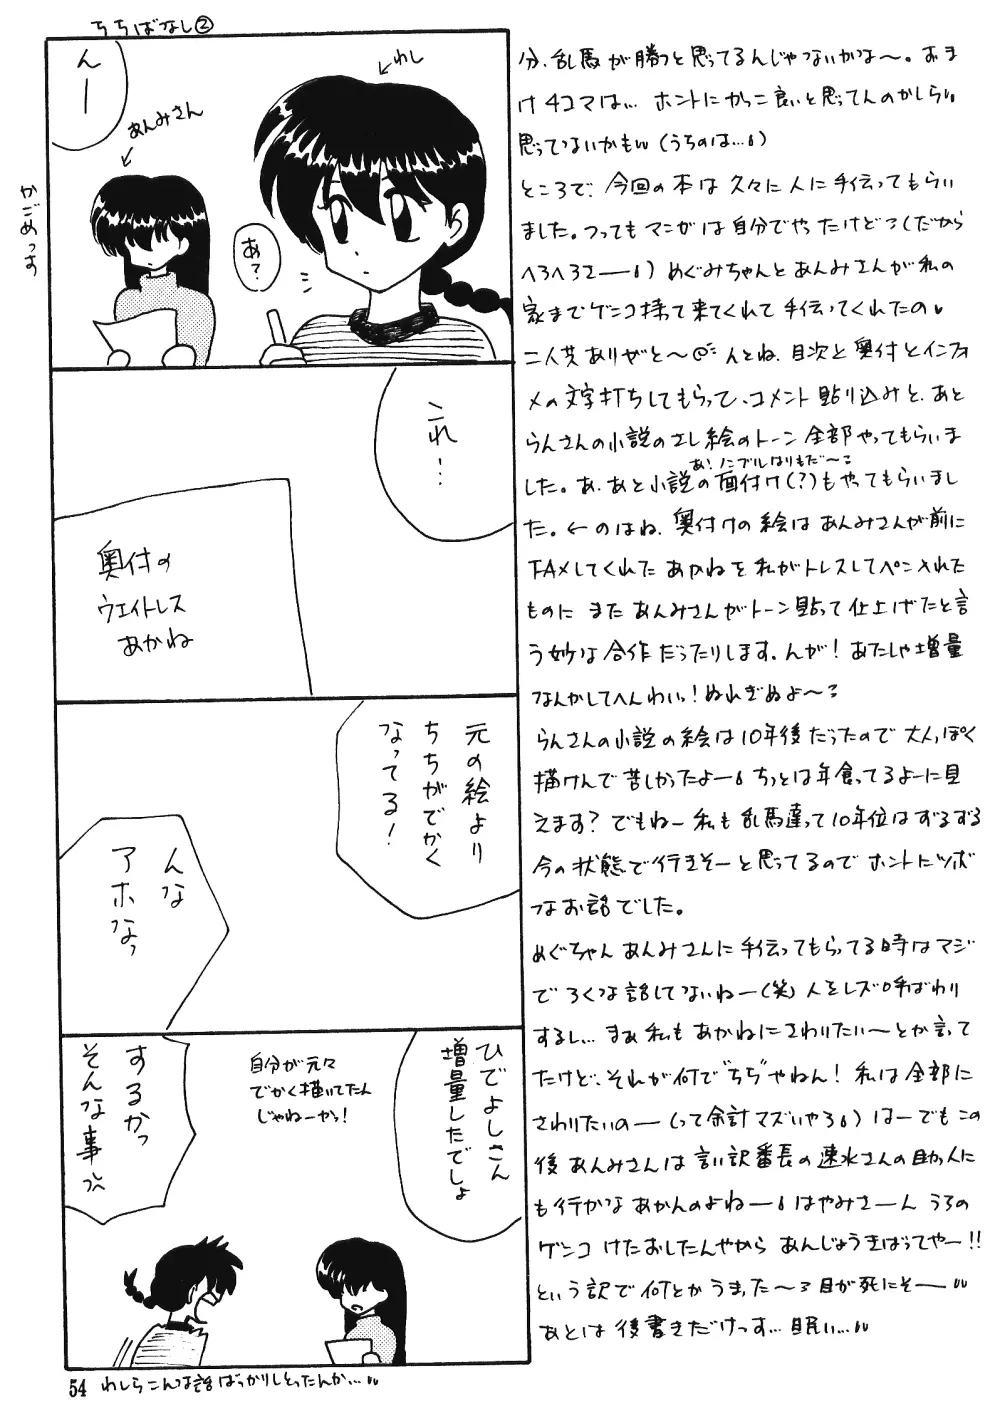 ちちばなし②
んー
わし
あんみさん
かごめっす
あ?
これ…
奥付の
ウエイトレス
あかね
元の絵より
ちちがでかく
なってる!
んな
アホなっ
ひでよしさん
増量したでしょ
自分が元々
でかく描いてたん
じゃねーかっ!
するかっ
そんな事っ
54 わしらこんな話ばっかりしとったんか…
分、乱馬が勝つと思ってるんじゃないかな〜。おま
け4コマは… ホントにかっこ良いと思ってんのかしら
思ってないかも(うちのは…)
ところで、今回の本は久々に人に手伝ってもらい
ました。つってもマンガは自分でやったけど(だから
へろへろさー)めぐみちゃんとあんみさんが私の
家までゲンコ持って来てくれて手伝ってくれたの
二人共ありがと〜 んとね、目次と奥付とインフォ
メの文字打ちしてもらって、コメント貼り込みと、あと
らんさんの小説のさし絵のトーン全部やってもらいま
あ!ノンブルはりもだ〜
した。あ、あと小説の面付け(?)もやってもらいまし
た。←のはね、奥付けの絵はあんみさんが前に
FAXしてくれたあかねを私がトレスしてペン入れた
ものに またあんみさんがトーン貼って仕上げたと言
う妙な合作だったりします。んが!あたしゃ増量
なんかしてへんわいっ!ぬれぎぬよ〜
らんさんの小説の絵は10年後だったので大人っぽく
描けんで苦しかったよー ちっとは年食ってるよーに見
えます?でもねー私も乱馬達って10年位はずるずる
今の状態で行きそーと思ってるのでホントにツボ
なお話でした。
めぐちゃんあんみさんに手伝ってもらってる時はマジ
でろくな話してないねー(笑)人をレズ呼ばわり
するし… まぁ私もあかねにさわりたい〜とか言って
たけど、それが何で"ちち"やねん!私は全部に
さわりたいのー(って余計マズいやろ)はーでもこの
後あんみさんは言い訳番長の速水さんの助っ人に
も行かなあかんのよねー はやみさーん うちの
ゲンコ けたおしたんやから あんじょうきばってやー!!
という訳で何とかうまった〜 目が死にそー
あとは後書きだけっす…眠い…